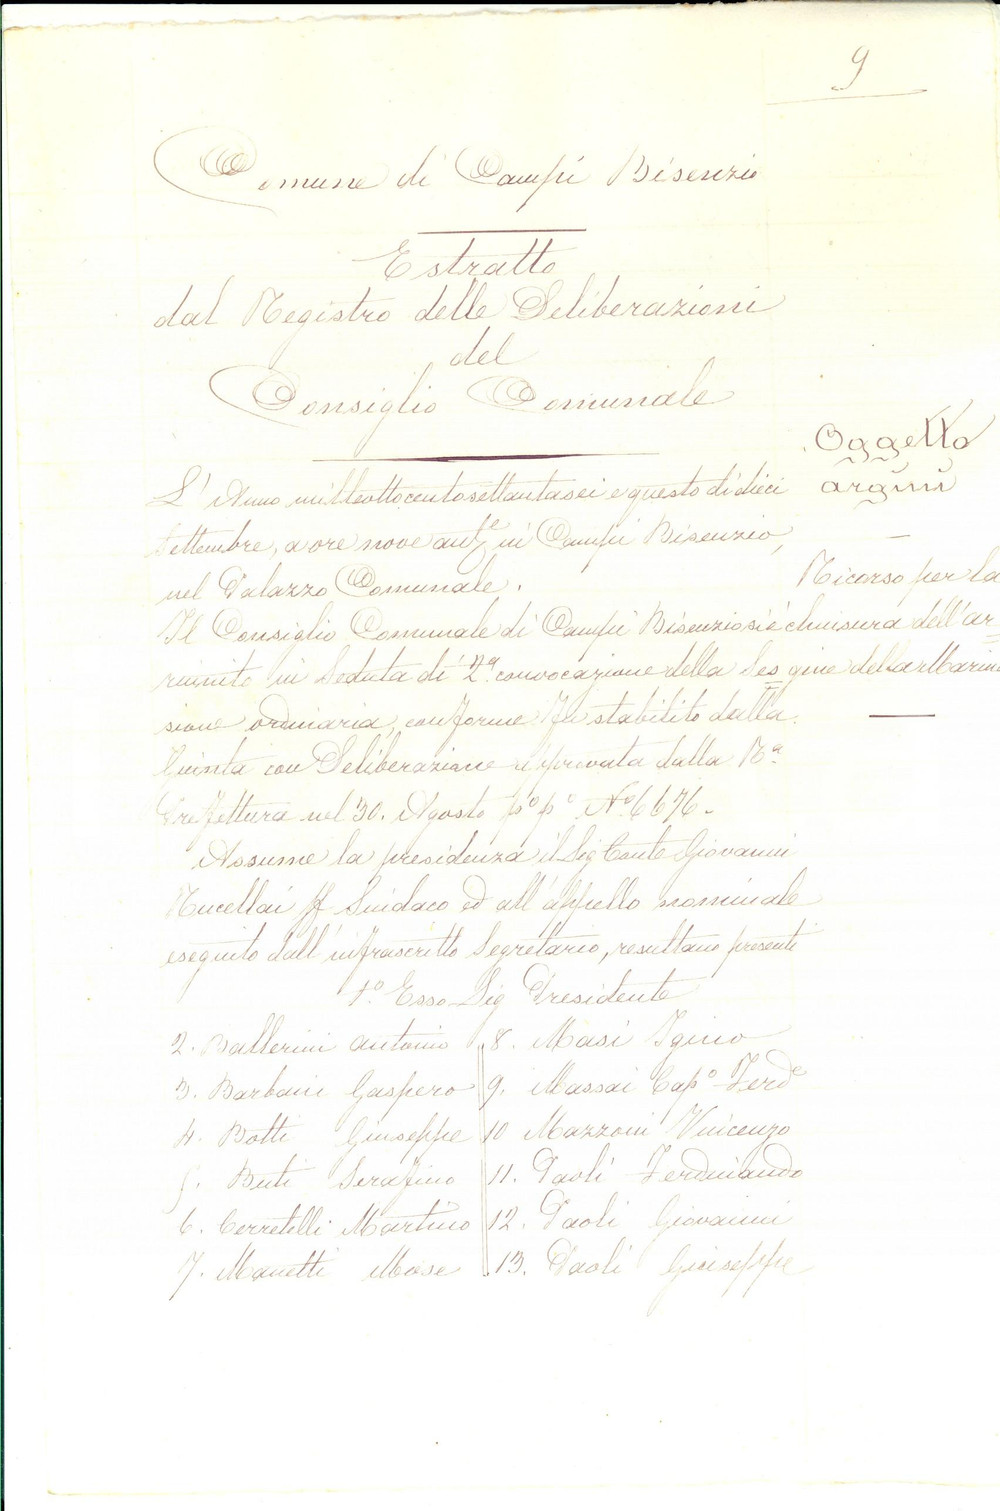 9
Comune di Campi Bisenzio
Estratto
dal Registro delle Deliberazioni
del
Consiglio Comunale
L' Anno milleottocentosettantasei e questo dì dieci
Settembre, a ore nove ant.e in Campi Bisenzio,
nel Palazzo Comunale.
Il Consiglio Comunale di Campi Bisenzio si è
riunito in Seduta di 2a. convocazione della Ses
sione ordinaria, conforme fu stabilito dalla
Giunta con Deliberazione approvata dalla Ra.
Prefettura nel 30. Agosto po. po. No. 6676.
Assume la presidenza il Sig Conte Giovanni
Rucellai ff Sindaco ed all' appello nominale
eseguito dall' infrascritto Segretario, resultano presenti
1.o Esso Sig Presidente
2. Ballerini Antonio
3. Barbani Gaspero
4. Botti Giuseppe
5. Buti Serafino
6. Cerretelli Martino
7. Manetti Mose
8. Masi Igino
9. Massai Capo Ferdo
10 Mazzoni Vincenzo
11. Paoli Ferdinando
12. Paoli Giovanni
13. Paoli Giuseppe
Oggetto
argini
Ricorso per la
chiusura dell' ar=
gine della Marina